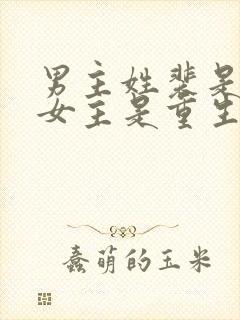 男主姓裴是
女主是重生
蠢萌的玉米